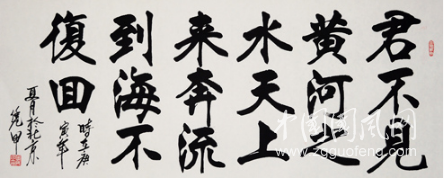 君不見
黄河之
水天上
来奔流
到海不
復回
時在庚
寅年
夏月於北京
中国国风网
www.zgguofeng.com